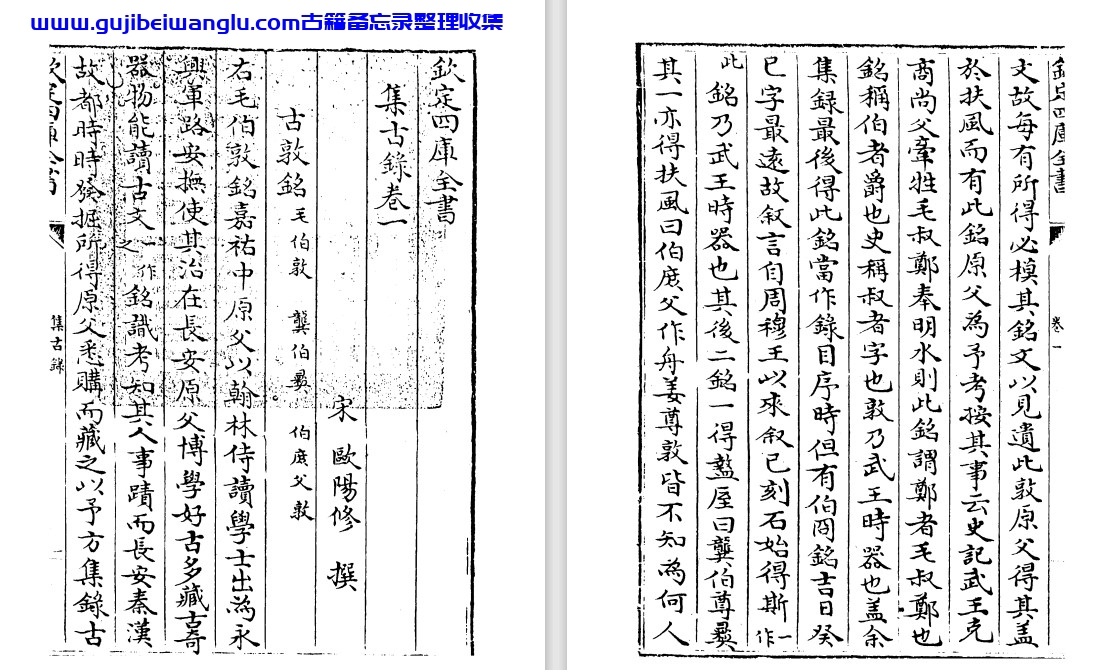 www.gujibeiwanglu.com古籍备忘录整理收集
欽定四庫全書
集古錄卷一
宋 歐陽修 撰
古敦銘 毛伯敦 龔伯彞 伯庶父敦
右毛伯敦銘嘉祐中原父以翰林侍讀學士出為永
興軍路安撫使其治在長安原父博學好古多藏古奇
器物能讀古文一作之銘識考知其人事蹟而長安秦漢
故都時時發掘所得原父悉購而藏之以予方集錄古
欽定四庫全書
集古錄
欽定四庫全書
卷一
文故每有所得必模其銘文以見遺此敦原父得其蓋
於扶風而有此銘原父為予考按其事云史記武王克
商尚父牽牲毛叔鄭奉明水則此銘謂鄭者毛叔鄭也
銘稱伯者爵也史稱叔者字也敦乃武王時器也蓋余
集録最後得此銘當作錄目序時但有伯冏銘吉日癸
已字最遠故叙言自周穆王以來叙已刻石始得斯一作
此銘乃武王時器也其後二銘一得盩厔曰龔伯尊彞
其一亦得扶風曰伯庶父作舟姜尊敦皆不知為何人